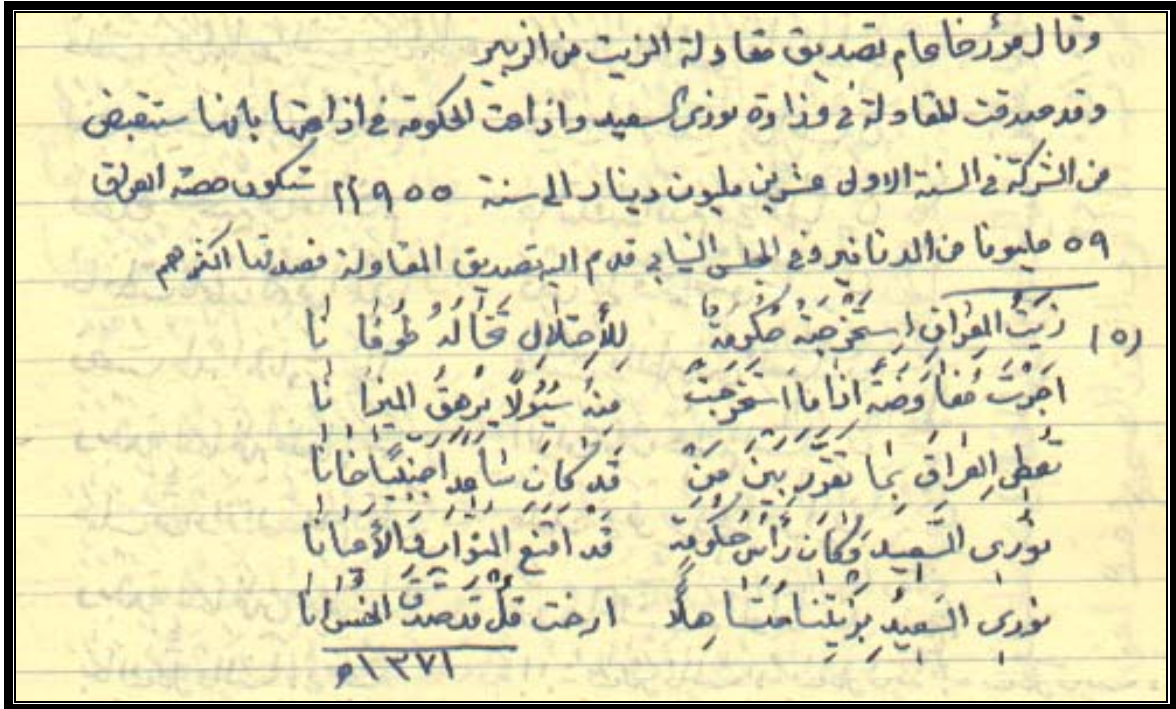 وقال مؤرخا عام تصديق مقاولة الزيت من الزبير
وقد صدقت المقاولة في وزارة نوري السعيد واذاعت الحكومة في اذاعتها بانها ستقبض
من الشركة في السنة الاولى عشرين مليون دينار الى سنة ١٩٥٥ ستكون حصة العراق
٥٩ مليونا من الدنانير وفي المجلس النيابي قدم اليه تصديق المقاولة فصدقها اكثرهم
(٥) زَيْتُ العِراقِ اِستَخْرَجَتْهُ حُكُومَةٌ للأِحتِلالِ تَخَالُهُ طُوفَا نا
اَجْرَتْ مُفاوَضَةً اذا ما استَخرَجَتْ مِنهُ سُيُولًا يُرهِقُ الميزا نا
تُعطِي العِراقَ بِما تَقَرَّرَ بَينَ مَنْ قَد كانَ ساعَدَ اَجنَبِيًّا خانا
نُوري السَّعِيدِ وَكانَ رَأسَ حُكُومَةٍ قَد اقنَعَ النوّابَ وَالأَعيانا
نوري السَّعِيدُ بِزَيتِنا مُتَساهِلًا ارخت قُلْ قَد صَدَّقَ الخُسْرانا
١٣٧١هـ